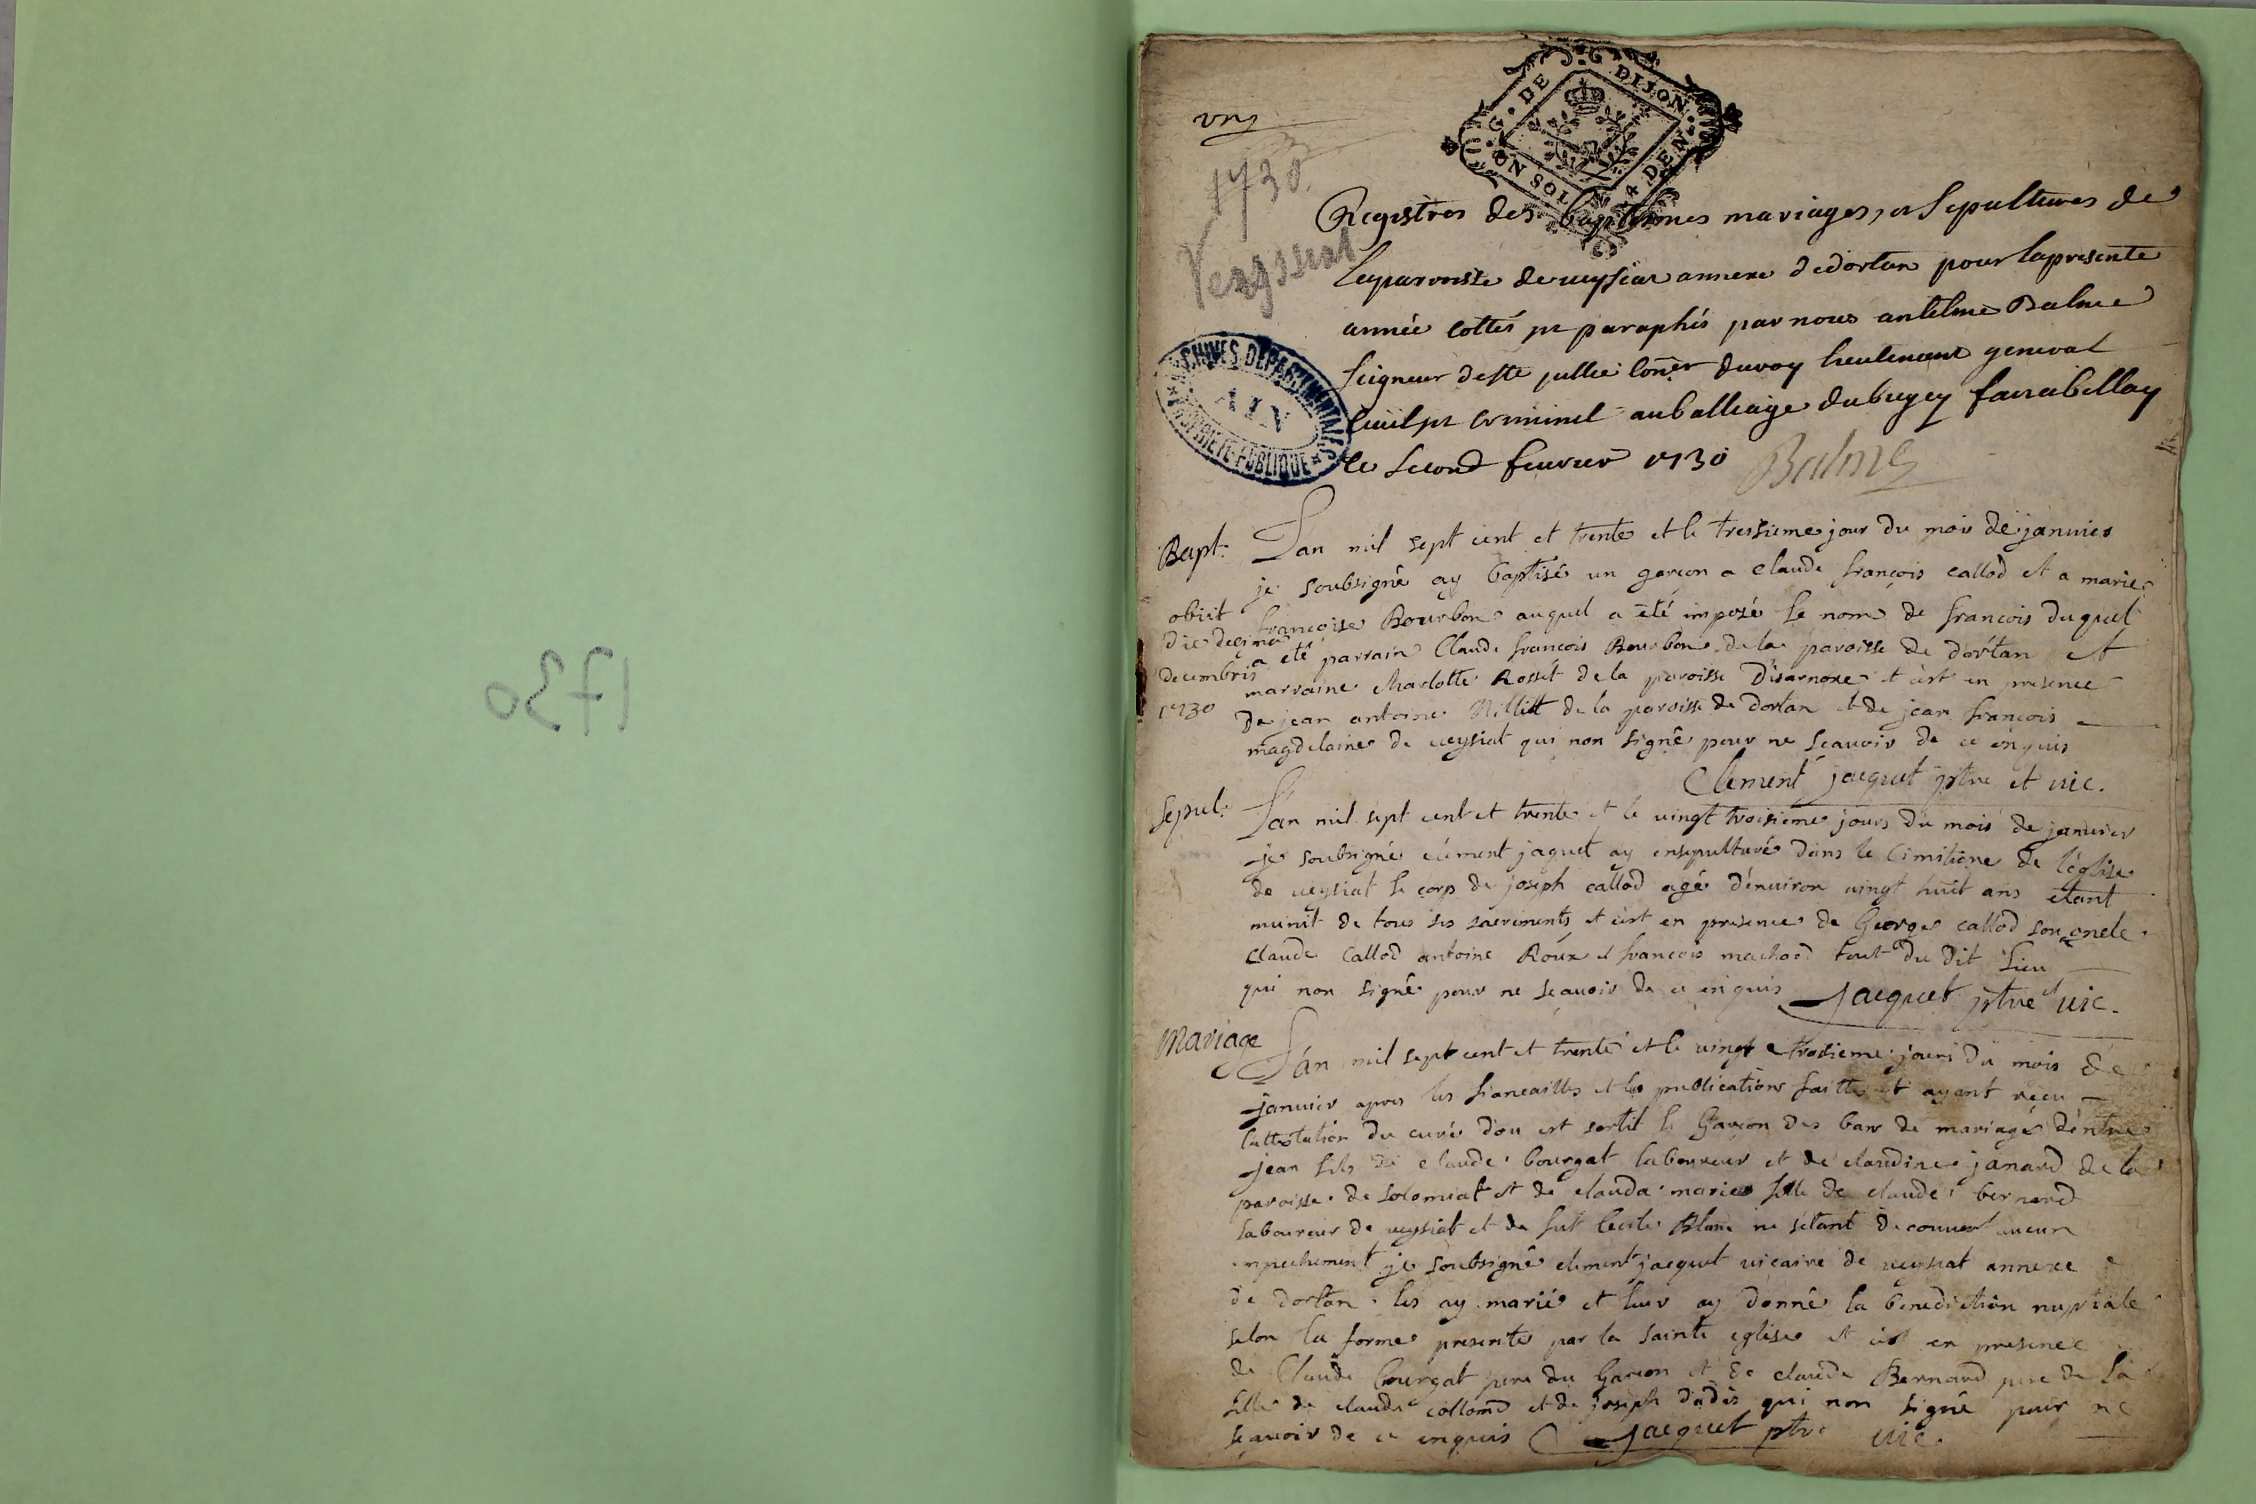 1730
vng
1730.
Veyssiat
G. DE DIJON
4 DEN
ON SOL
Registres des baptesmes mariages, et sepultures de
la parroisse de veysiat annexe de dortan pour la presente
année cottés et paraphés par nous antelme Balme
seigneur de ste jullie coner du roy lieutenant general
civil et criminel au balliage du bugey fait a bellay
le second feuvrier 1730 Balme
ARCHIVES DEPARTEMENTALES
AIN
PROPRIETE PUBLIQUE
Bapt. Lan mil sept cent et trente et le tressieme jour du mois de janvier
je soubsigné ay baptisé un garçon a claude françois callod et a marie
obiit françoise Bourbon auquel a été imposé le nom de françois duquel
die decima a eté parrain Claude francois Bourbon de la paroisse de dortan et
decembris marraine charlotte Rossét de la paroisse d'isarnore et c'est en presence
1730 de jean antoine Nillitt de la paroisse de dortan et de jean francois
magdelaine de veysiat qui non signé pour ne scauoir de ce enquis
Clement jacquet ptre et vic.
Sepul. Lan mil sept cent et trente et le vingt troisieme jours du mois de janvier
je soubsigné clément jaquet ay ensepulturé dans le cimitiere de l'église
de veysiat le corps de joseph callod agé d'enuiron vingt huit ans etant
munit de tous ses sacrements et c'est en presence de George callod son oncle
claude callod antoine Roux et francois machard tout du dit lieu
qui non signé pour ne scauoir de ce enquis Jacquet ptre et vic.
Mariage L'an mil sept cent et trente et le vingt troisieme jours du mois de
janvier apres les fiancailles et les publications faitte et ayant recu
lattestation du curé dou est sortit le Garçon des bans de mariage d'éntre
jean fils de claude bourgat laboureur et de claudine janard de la
paroisse de solomiat et de clauda marie fille de claude bernard
laboureur de veysiat et de fut Cecile Blanc ne sétant decouvert aucun
empechement je soubsigné clement jacquet vicaire de veysiat annexe
de dortan les ay marié et leur ay donné la benediction nuptiale
selon la forme presente par la sainte eglise et c'est en presence
de Claude bourgat pere du Garcon et de claude Bernard pere de la
fille de claude collomd et de joseph dadés qui non signé pour ne
scauoir de ce enquis Jacquet ptre vic.